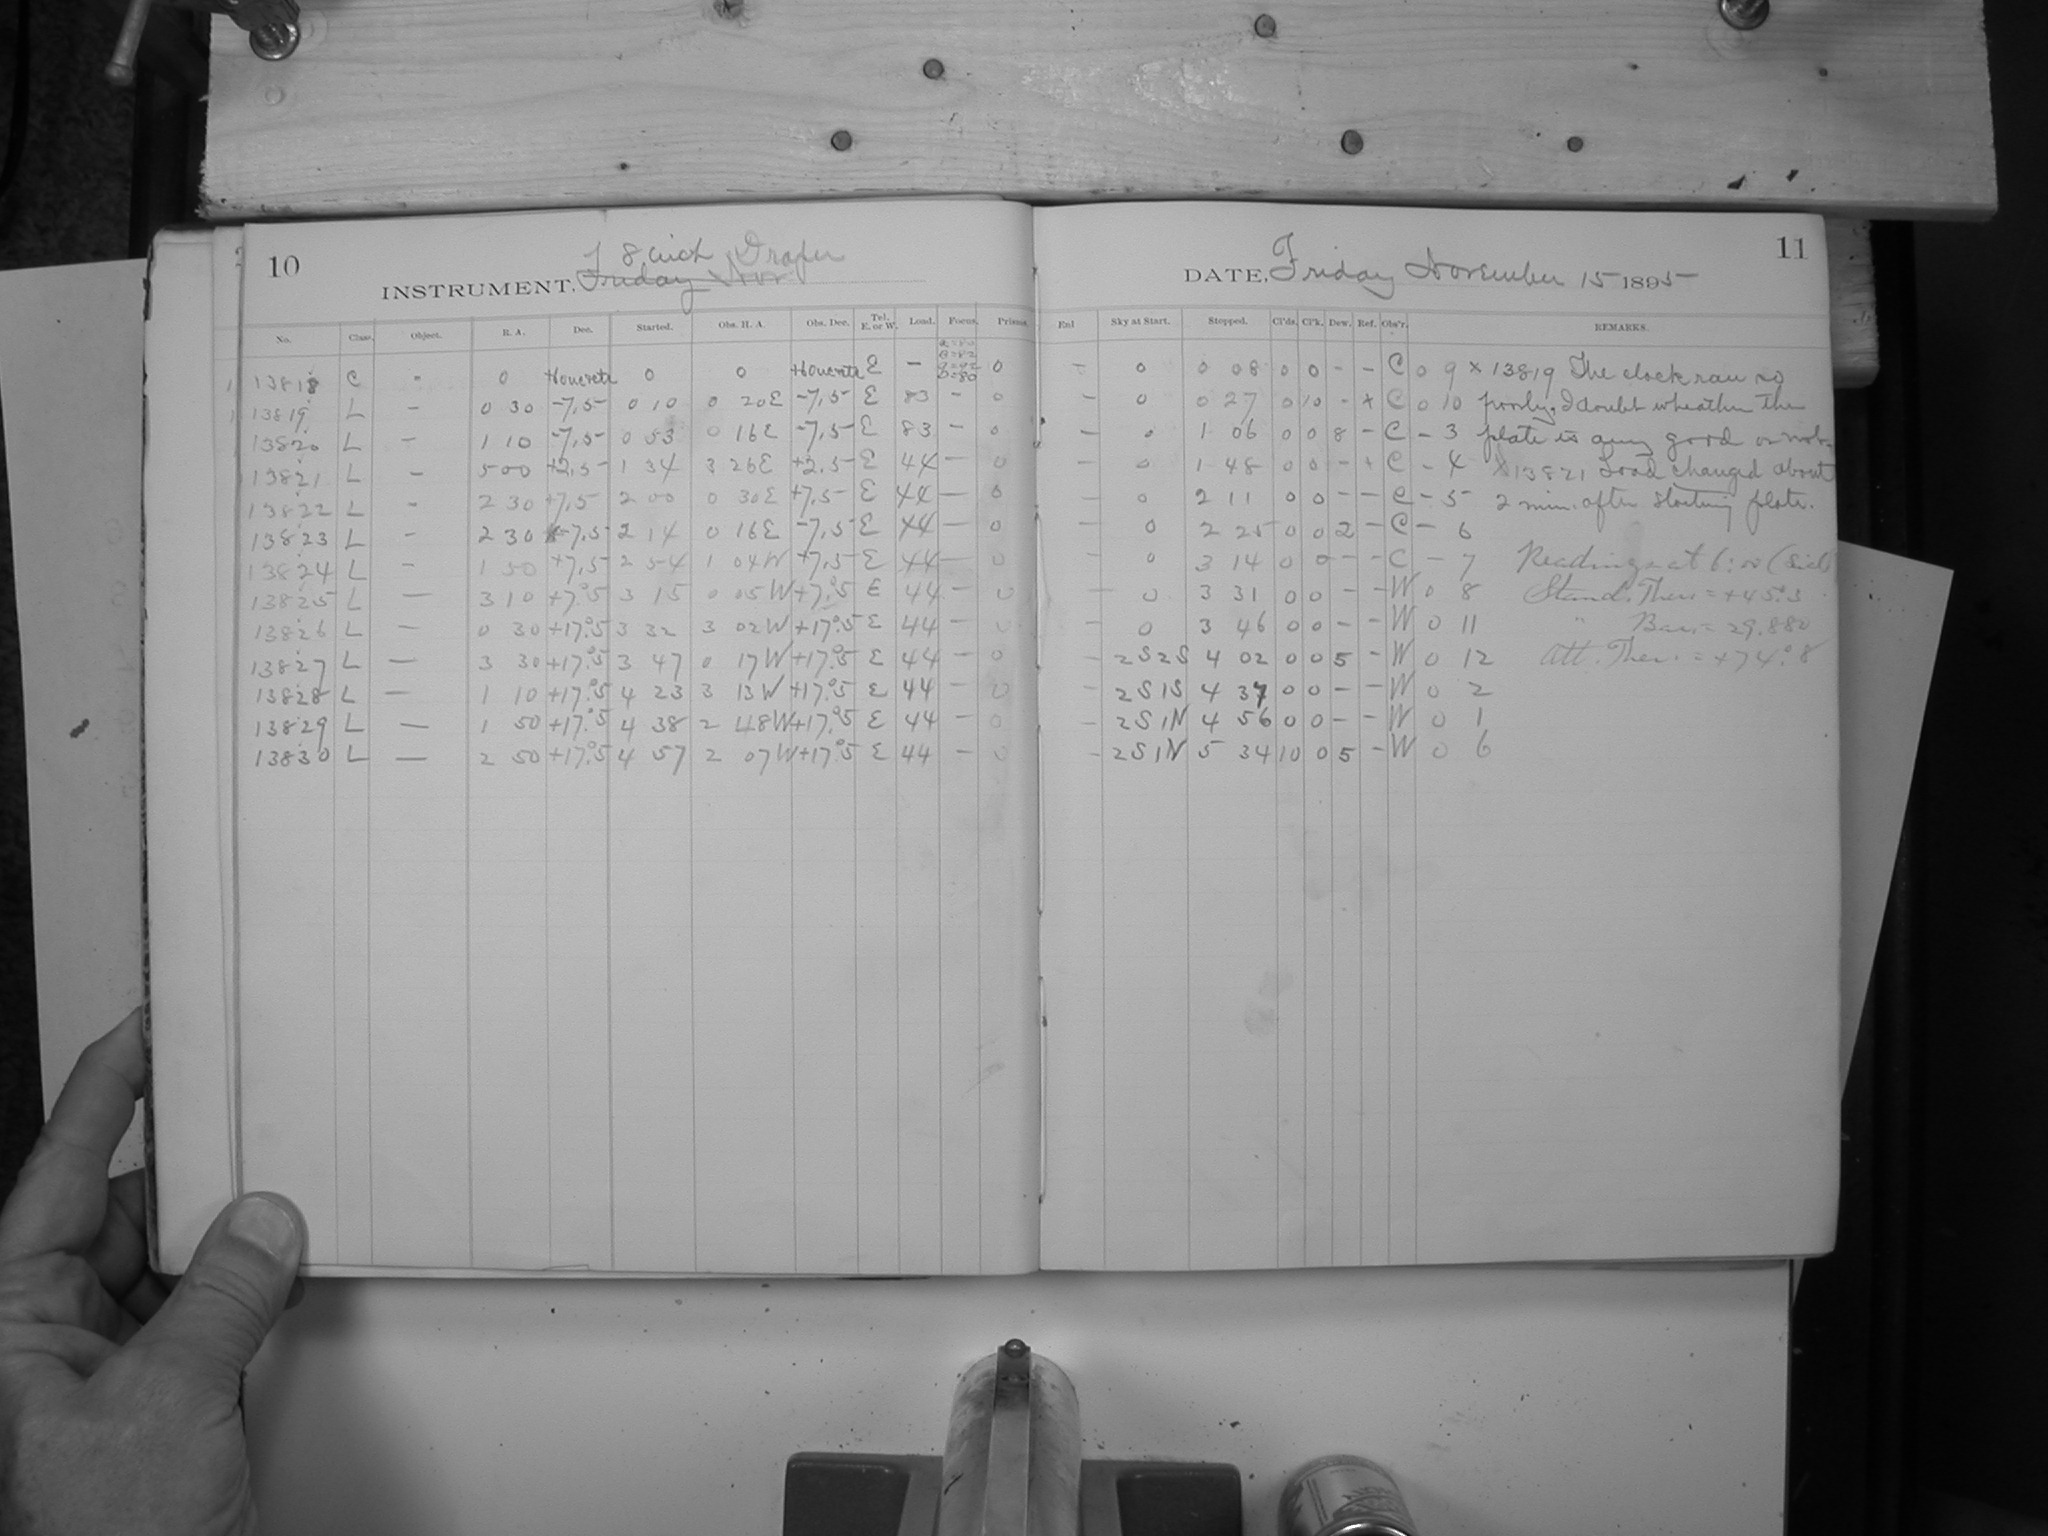 10
8 inch Draper
INSTRUMENT, Friday Nov
No. Class. Object. R. A. Dec. Started. Obs. H. A. Obs. Dec. Tel. E. or W. Load. Focus. Prisms.
13818 C - 0 0 0 E - 0
13819 L - 0 30 -7,5 0 10 0 20E -7,5 E 83 - 0
13820 L - 1 10 -7,5 0 53 0 16E -7,5 E 83 - 0
13821 L - 5 00 +2,5 1 34 3 26E +2,5 E 44 - 0
13822 L - 2 30 +7,5 2 00 0 30E +7,5 E 44 - 0
13823 L - 2 30 -7,5 2 14 0 16E -7,5 E 44 - 0
13824 L - 1 50 +7,5 2 54 1 04W +7,5 E 44 - 0
13825 L - 3 10 +7°.5 3 15 0 05W +7°.5 E 44 - 0
13826 L - 0 30 +17°.5 3 32 3 02W +17°.5 E 44 - 0
13827 L - 3 30 +17°.5 3 47 0 17W +17°.5 E 44 - 0
13828 L - 1 10 +17°.5 4 23 3 13W +17°.5 E 44 - 0
13829 L - 1 50 +17°.5 4 38 2 48W +17°.5 E 44 - 0
13830 L - 2 50 +17°.5 4 57 2 07W +17°.5 E 44 - 0
11
DATE, Friday November 15 1895
Enl Sky at Start. Stopped. Cl'ds. Cl'k. Dew. Ref. Obs'r. REMARKS.
- 0 0 08 0 0 - - C 0 9 x 13819 The clock ran so
- 0 0 27 0 10 - x C 0 10 poorly, I doubt wheather the
- 0 1 06 0 0 8 - C - 3 plate is any good or not.
- 0 1 48 0 0 - x C - 4 x 13821 Load changed about
- 0 2 11 0 0 - - C - 5 2 min. after starting plate.
- 0 2 25 0 0 2 - C - 6
- 0 3 14 0 0 - - C - 7 Readings at 6:00 (Sid)
- 0 3 31 0 0 - - W 0 8 Stand. Ther. = +45°.3
- 0 3 46 0 0 - - W 0 11 " Bar. = 29.882
- 2S2S 4 02 0 0 5 - W 0 12 Att. Ther. = +74°.8
- 2S1S 4 37 0 0 - - W 0 2
- 2S1N 4 56 0 0 - - W 0 1
- 2S1N 5 34 10 0 5 - W 0 6